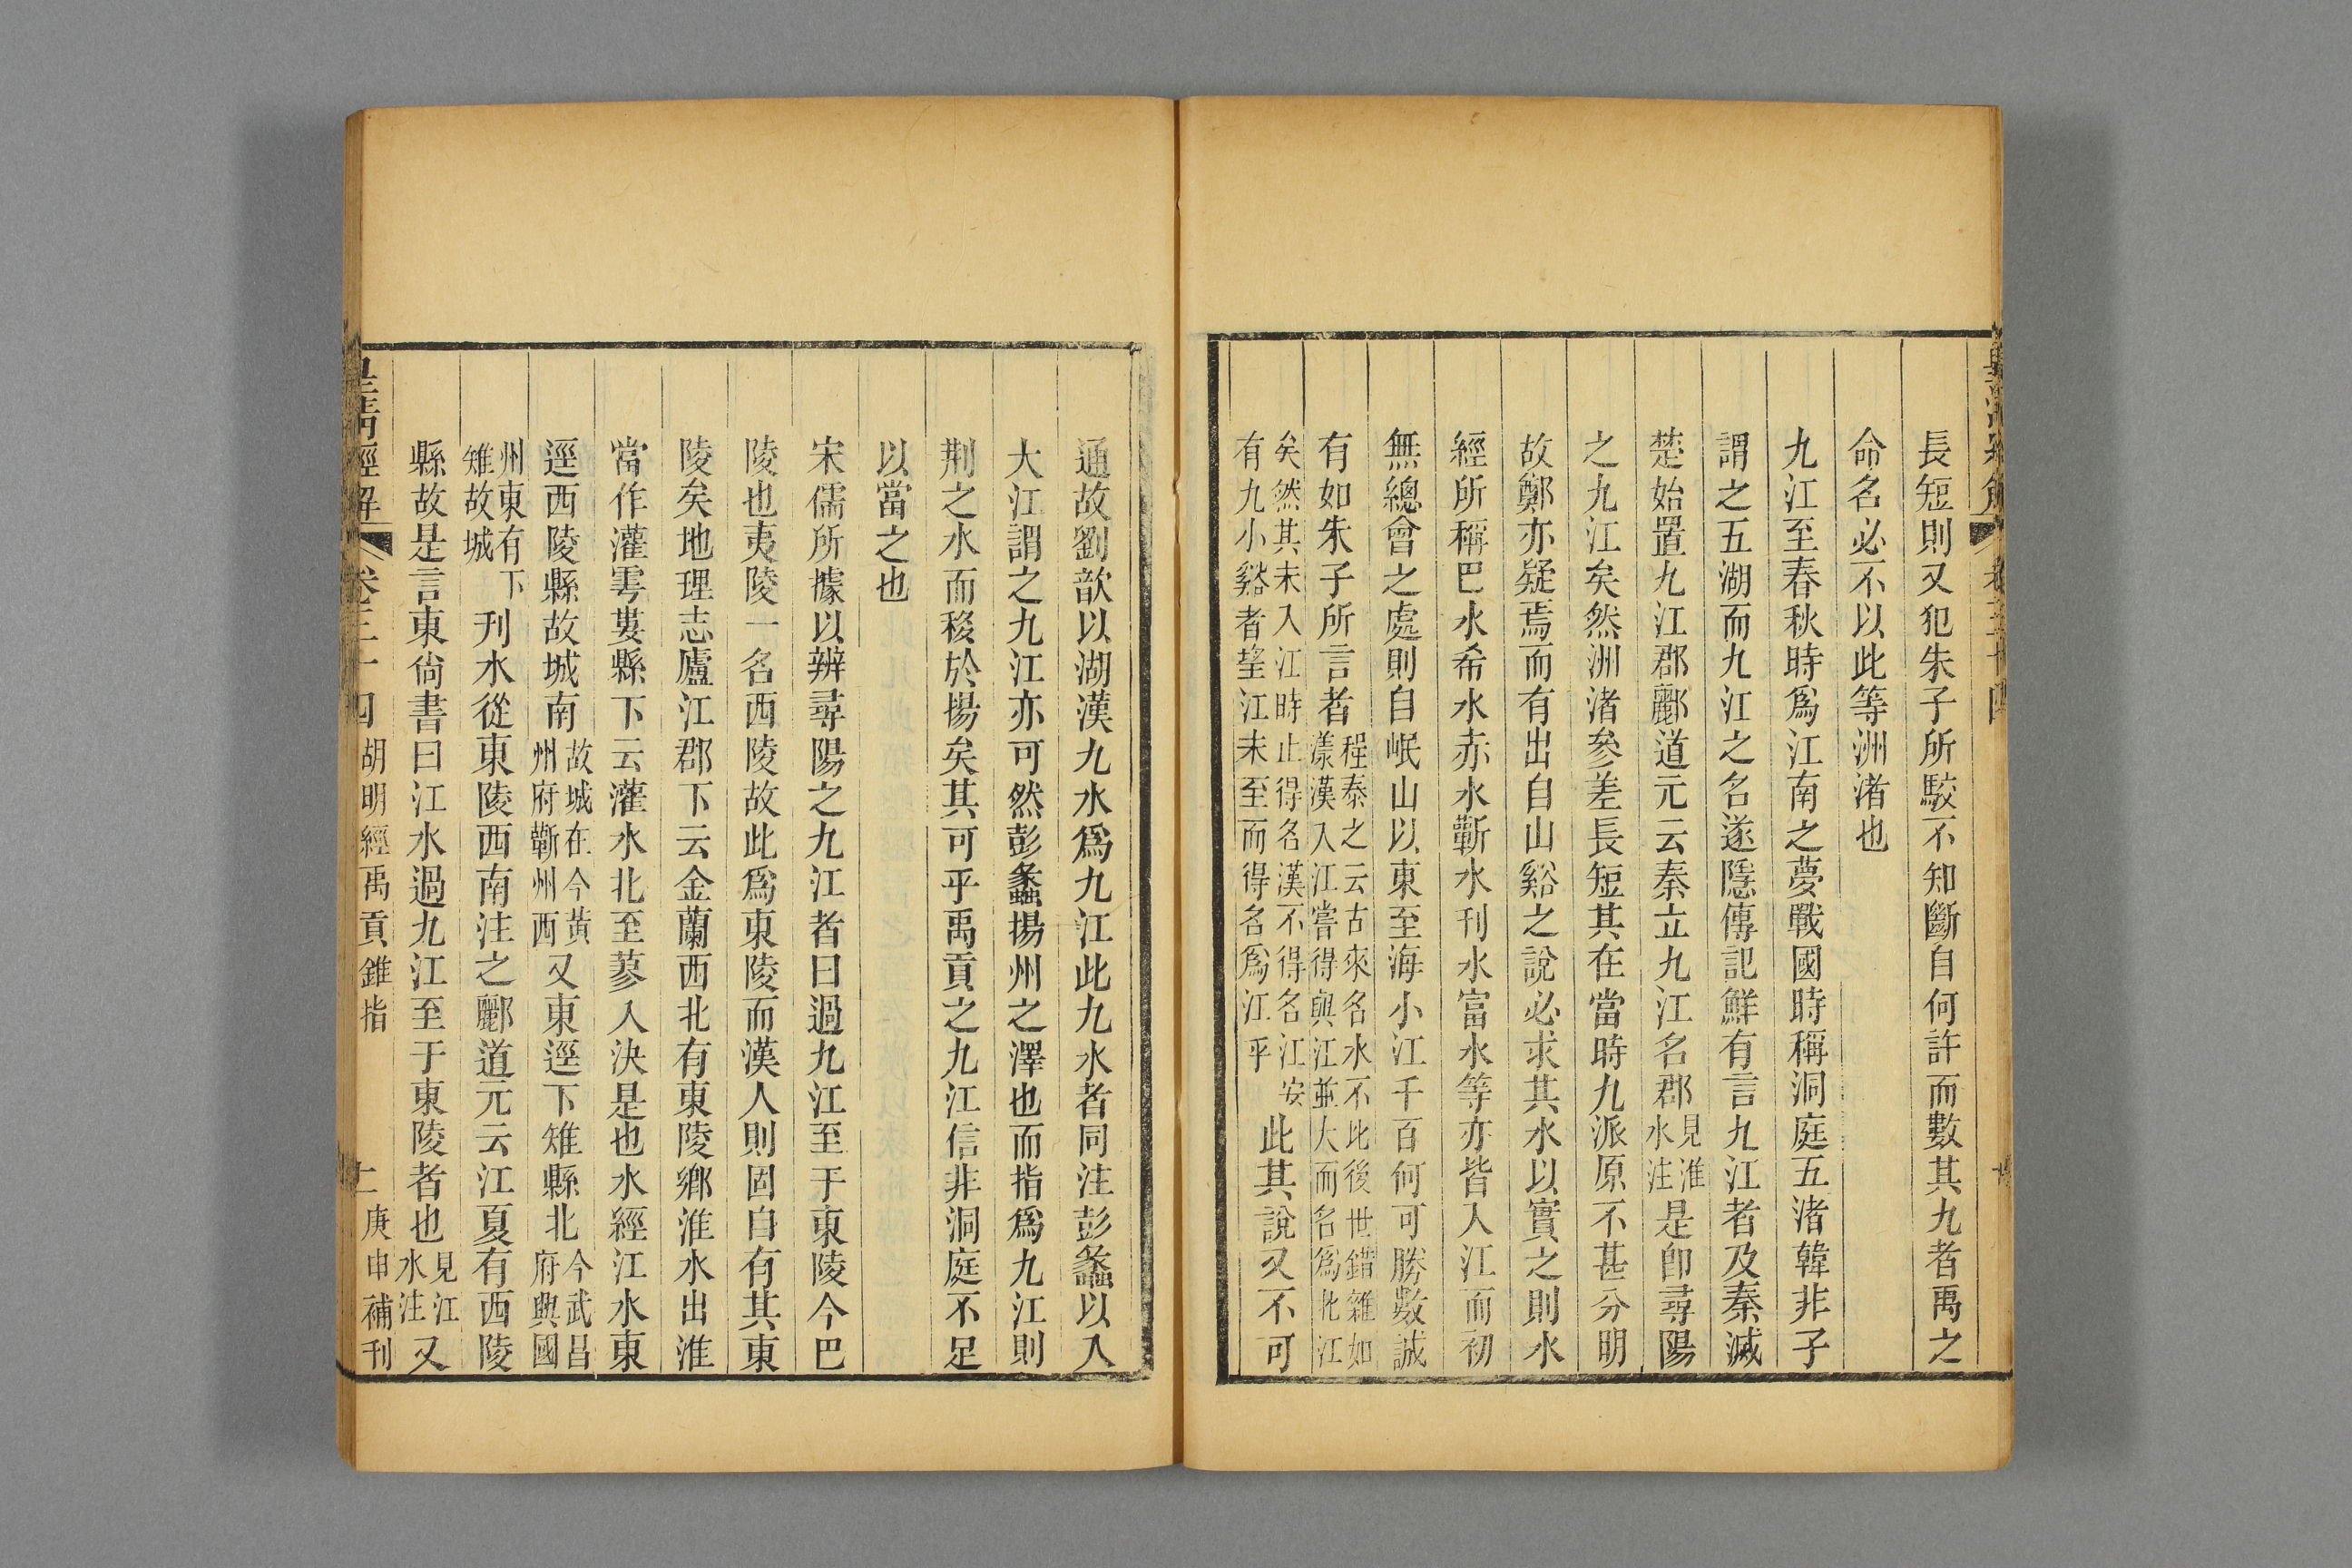 長短則又犯朱子所駮不知斷自何許而數其九者禹之
命名必不以此等洲渚也
九江至春秋時爲江南之夢戰國時稱洞庭五渚韓非子
謂之五湖而九江之名遂隱傳記鮮有言九江者及秦滅
楚始置九江郡酈道元云秦立九江名郡見淮水注是卽尋陽
之九江矣然洲渚參差長短其在當時九派原不甚分明
故鄭亦疑焉而有出自山谿之說必求其水以實之則水
經所稱巴水希水赤水蘄水刊水富水等亦皆入江而初
無總會之處則自岷山以東至海小江千百何可勝數誠
有如朱子所言者程泰之云古來名水不比後世錯雜如漾漢入江嘗得與江並大而名爲北江
矣然其未入江時止得名漢不得名江安有九小谿者望江未至而得名爲江乎此其說又不可
通故劉歆以湖漢九水爲九江此九水者同注彭蠡以入
大江謂之九江亦可然彭蠡揚州之澤也而指爲九江則
荆之水而移於揚矣其可乎禹貢之九江信非洞庭不足
以當之也
宋儒所據以辨尋陽之九江者曰過九江至于東陵今巴
陵也夷陵一名西陵故此爲東陵而漢人則固自有其東
陵矣地理志廬江郡下云金蘭西北有東陵鄉淮水出淮
當作灌雩婁縣下云灌水北至蓼入決是也水經江水東
逕西陵縣故城南故城在今黃州府蘄州西又東逕下雉縣北今武昌府興國
州東有下雉故城刊水從東陵西南注之酈道元云江夏有西陵
縣故是言東尚書曰江水過九江至于東陵者也見江水注又
皇清經解 卷三十四 胡明經禹貢錐指 庚申補刊